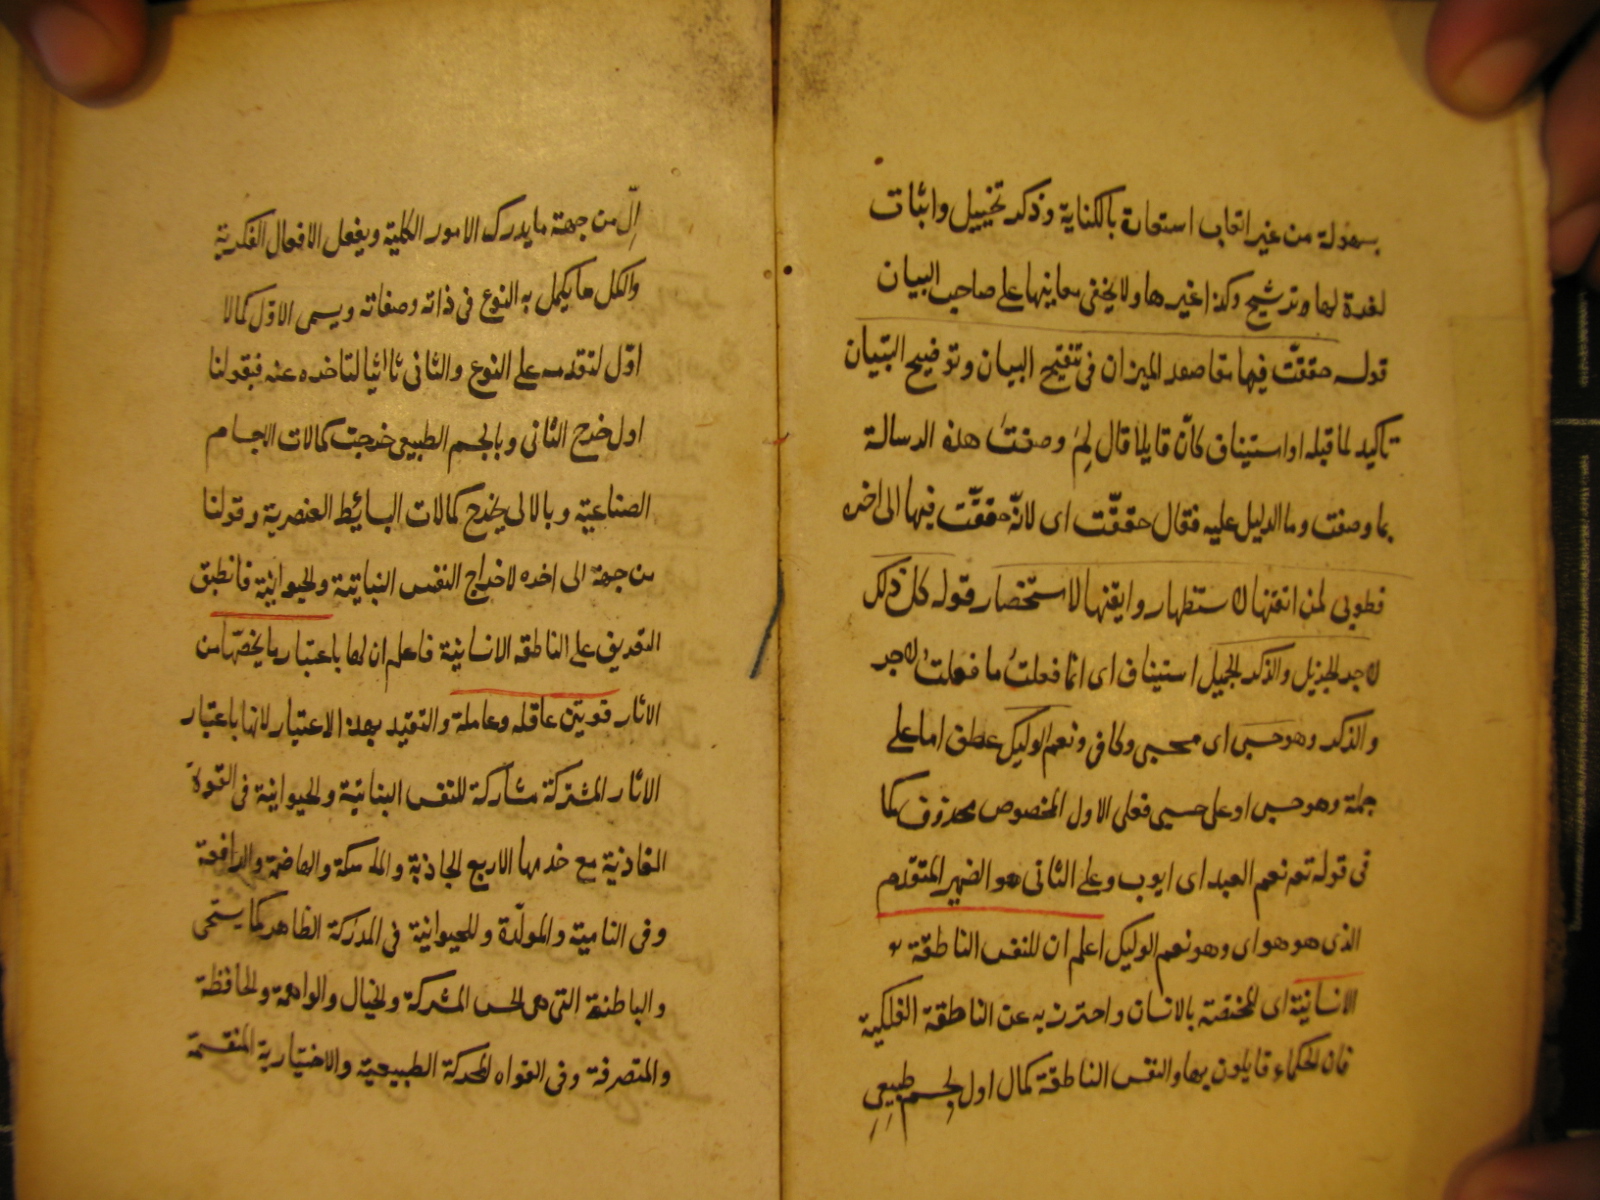 بسهولة من غير اتعاب استعارة بالكناية وذكر تخييل واثبات
لغدة لها وترشيح وكذا غيرها ولا يخفى معاينها على صاحب البيان
قوله حققت فيها مقاصد الميزان فى تنقيح البيان وتوضيح التبيان
تاكيد لما قبله او استيناف كانّ قايلا قال لِمَ وصفت هذه الرسالة
بما وصفت وما الدليل عليه فقال حققّت اى لانّه حققّت فيها الى اخره
فطوبى لمن اتقنها لاستظهار وايقنها لاستحضار قوله كل ذلك
لاجر الجزيل والذكر الجميل استيناف اى انما فعلتُ ما فعلتُ لاجر
والذكر وهو حسبى اى محسبى وكافى ونعم الوكيل عطف اما على
جملة وهو حسبى او على حسبى فعلى الاول المخصوص محذوف كما
فى قوله تعه نعم العبد اى ايوب وعلى الثانى هو الضمير المتقدّم
الذى هو هو اى وهو نعم الوكيل اعلم ان للنفس الناطقة
الانسانية اى المختصة بالانسان واحترز به عن الناطقة الفلكية
فان الحكماء قايلون بها والنفس الناطقة كمال اول لجسم طبيعى
الىّ من جهة ما يدرك الامور الكلية ويفعل الافعال الفكرية
والكمال ما يكمل به النوع فى ذاته وصفاته ويسمى الاوّل كمالا
اوّل لتقدمه على النوع والثانى ثانيا لتاخره عنه فبقولنا
اول خرج الثانى وبالجسم الطبيعى خرجت كمالات الاجسام
الصناعية وبالالى يخرج كمالات البسائط العنصرية وقولنا
من جهة الى اخره لاخراج النفس النباتية والحيوانية فانطبق
التعريف على الناطقة الانسانية فاعلم ان لها باعتبار ما يخصّها من
الاثار قوتين عاقلة وعاملة والتقييد بهذا الاعتبار لانها باعتبار
الاثار المشتركة مشاركة للنفس النباتية والحيوانية فى القوة
الغاذية مع خدمها الاربع الجاذبة والماسكة والهاضمة والدافعة
وفى النامية والمولّدة وللحيوانية فى المدركة الظاهر كما يستحى
والباطنة التى هى الحس المشتركة والخيال والواهمة والحافظة
والمتصرفة وفى القواه المحركة الطبيعية والاختيارية المنقسمة